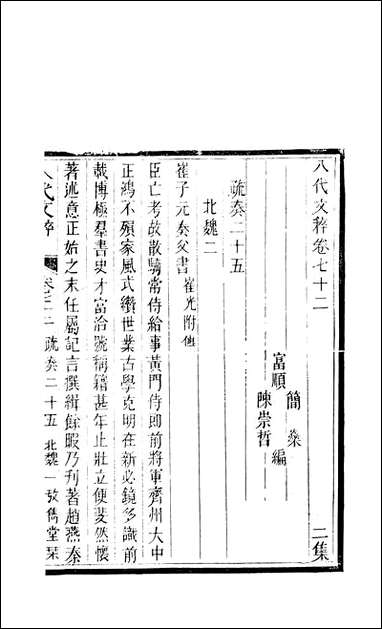 八代文粹卷七十二
二集
簡燊
富順
陳崇哲編
疏奏二十五
北魏二
崔子元奏父書崔光附傳
臣亡考故散騎常侍給事黃門侍郎前將軍齊州大中
正鴻不殞家風式纘世業古學克明在新必鏡多識前
載博極羣書史才富洽號稱籍甚年止壯立便斐然懷
著述意正始之末任屬記言撰緝餘暇乃刊著趙燕秦
八代文粹 卷七十二 疏奏二十五 北魏 一 敄雋堂栞